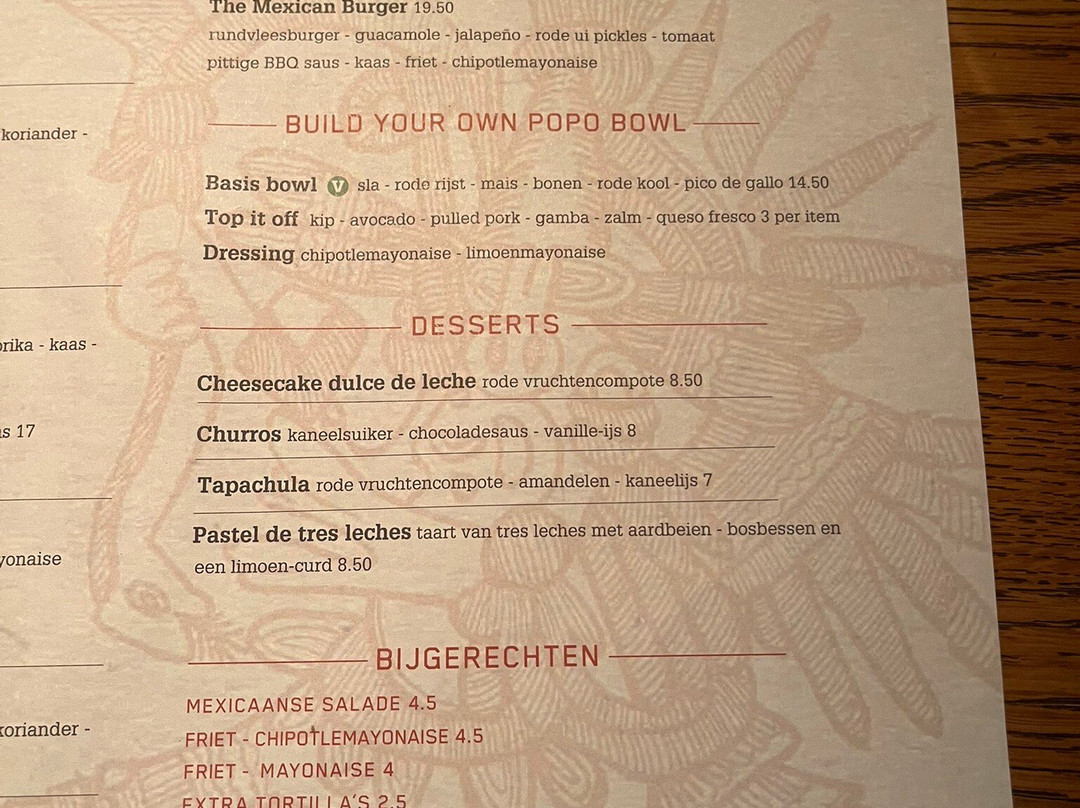 koriander -
orika - kaas -
as 17
yonaise
koriander -
The Mexican Burger 19.50
rundvleesburger - guacamole - jalapeño - rode ui pickles - tomaat
pittige BBQ saus - kaas - friet - chipotlemayonaise
BUILD YOUR OWN POPO BOWL
Basis bowl V sla - rode rijst - mais - bonen - rode kool - pico de gallo 14.50
Top it off kip - avocado - pulled pork - gamba - zalm - queso fresco 3 per item
Dressing chipotlemayonaise - limoenmayonaise
DESSERTS
Cheesecake dulce de leche rode vruchtencompote 8.50
Churros kaneelsuiker - chocoladesaus - vanille-ijs 8
Tapachula rode vruchtencompote - amandelen - kaneelijs 7
Pastel de tres leches taart van tres leches met aardbeien - bosbessen en
een limoen-curd 8.50
BIJGERECHTEN
MEXICAANSE SALADE 4.5
FRIET - CHIPOTLEMAYONAISE 4.5
FRIET - MAYONAISE 4
EXTRA TORTILLA'S 2.5